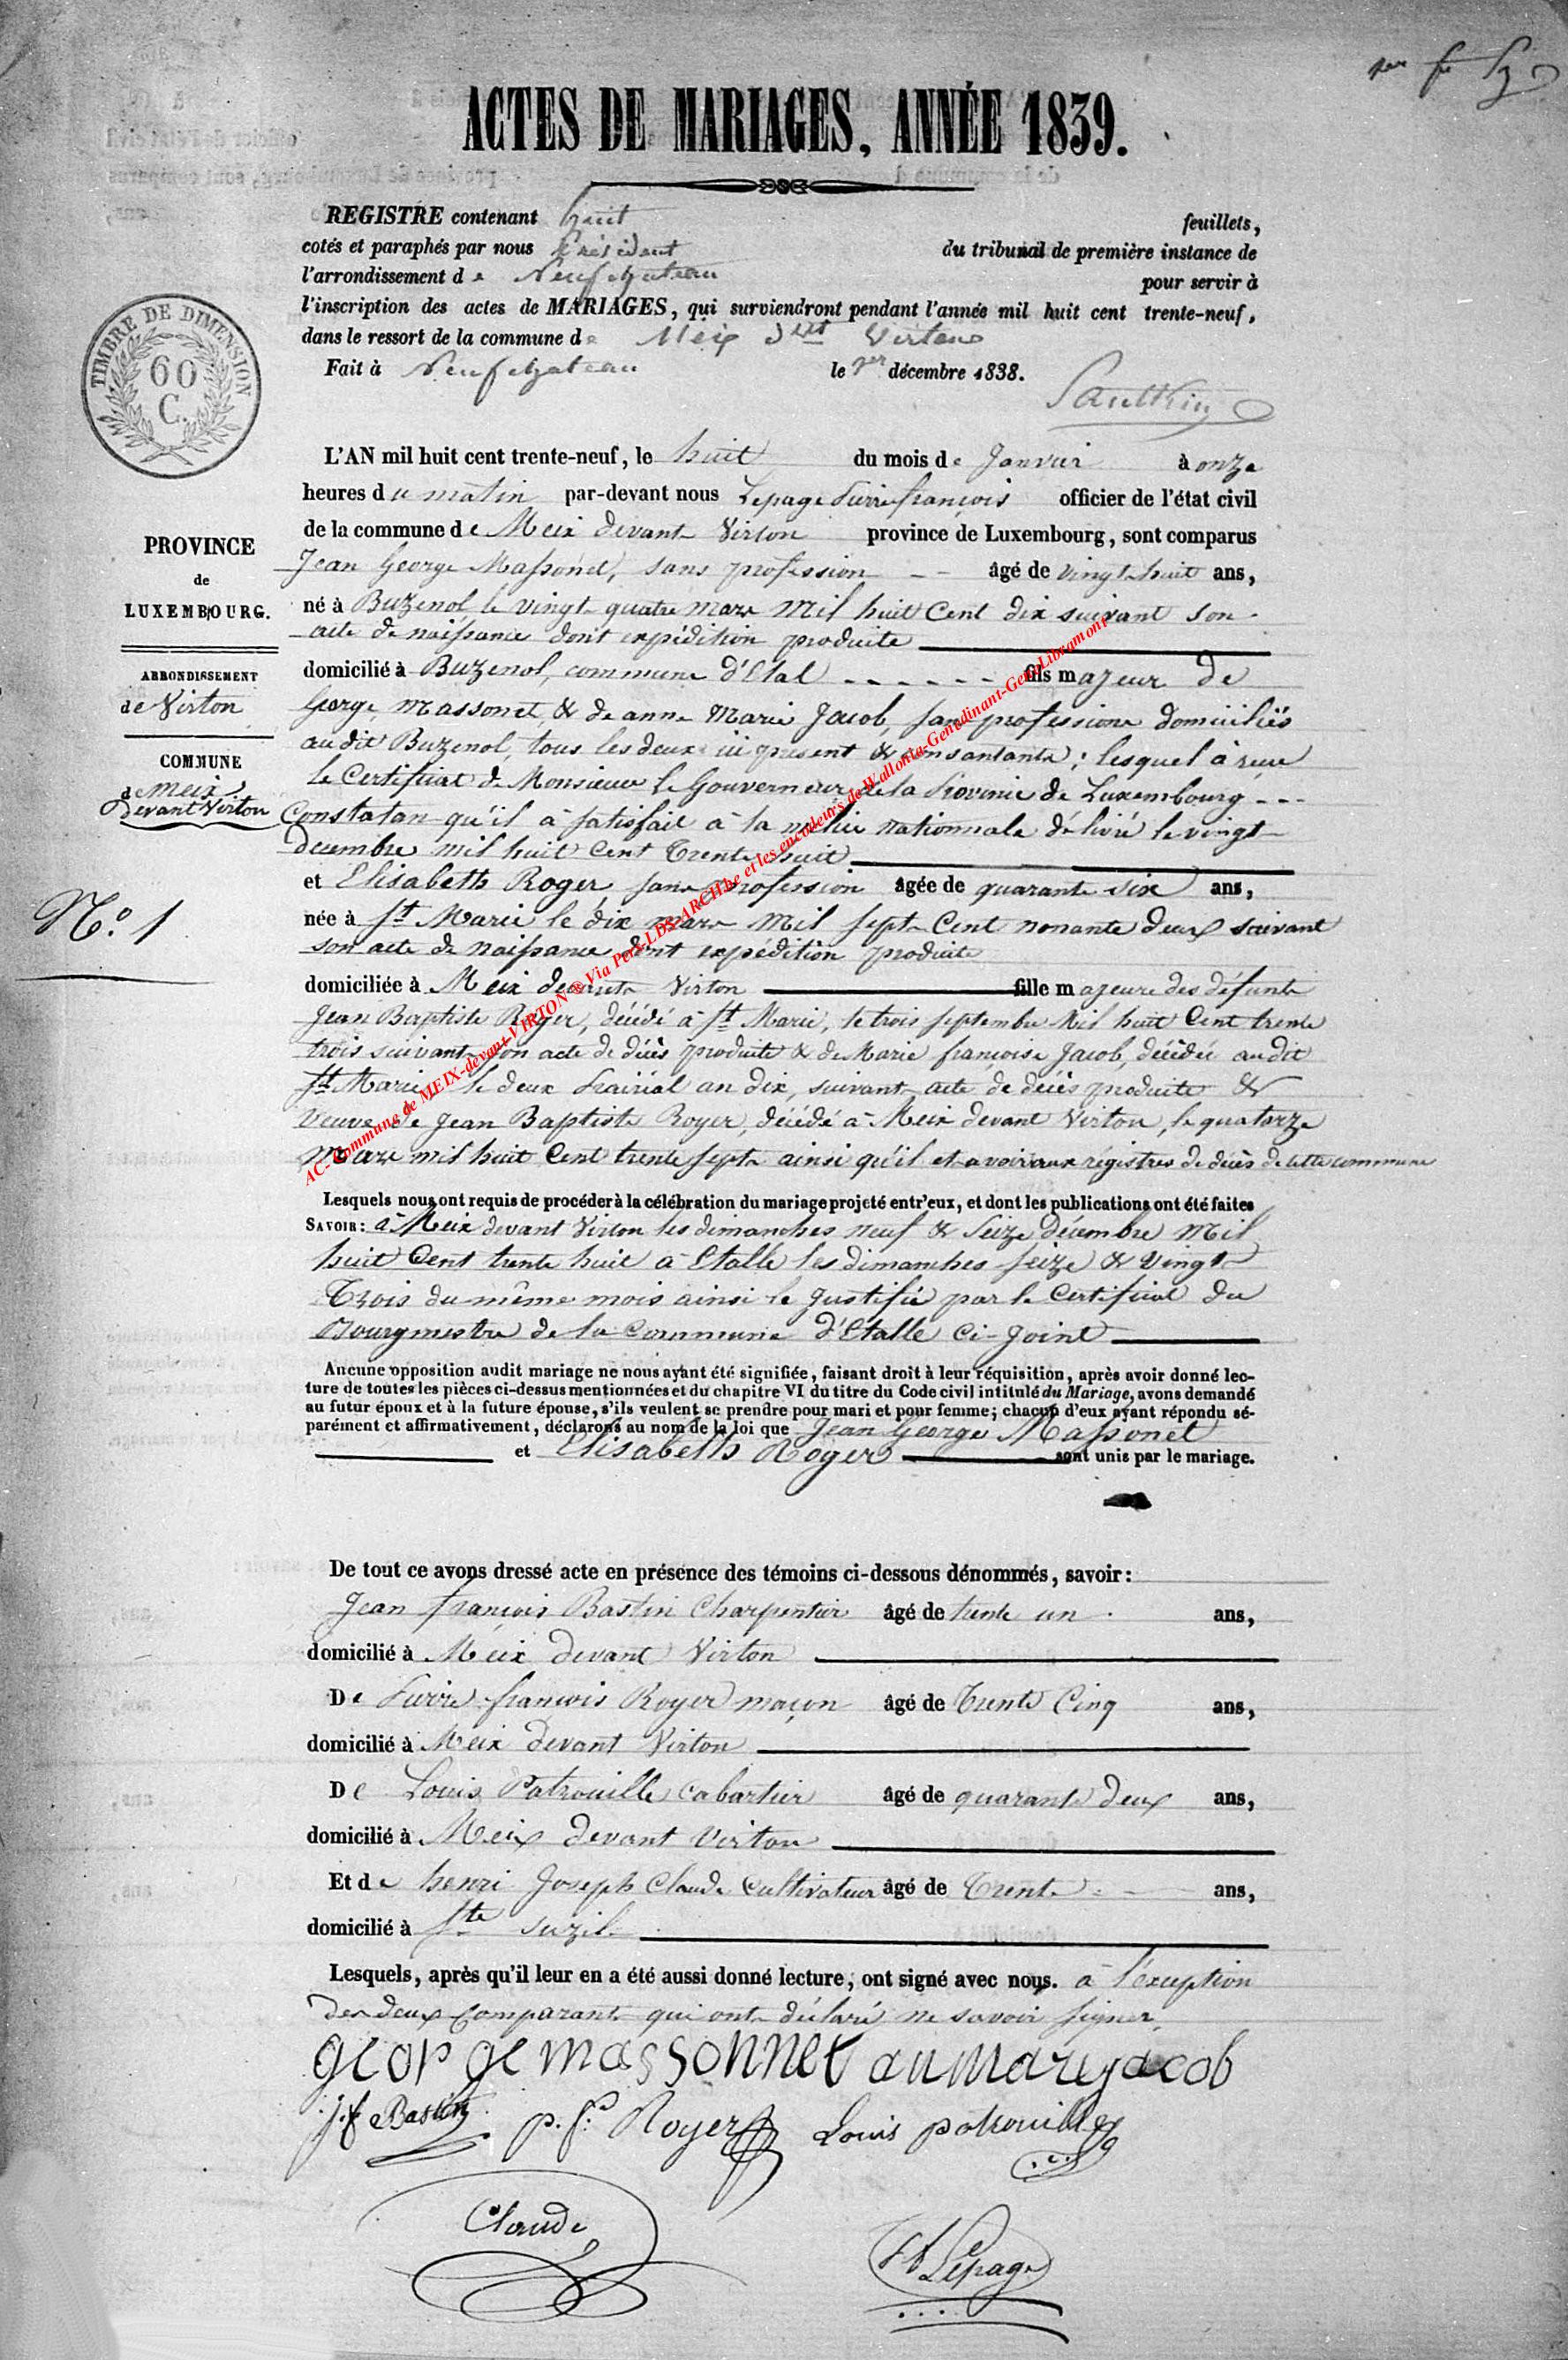 ACTES DE MARIAGES, ANNÉE 1839.
REGISTRE contenant huit feuillets,
cotés et paraphés par nous Président du tribunal de première instance de
l'arrondissement de Neufchateau pour servir à
l'inscription des actes de MARIAGES, qui surviendront pendant l'année mil huit cent trente-neuf,
dans le ressort de la commune de Meix dvt Virton
Fait à Neufchateau le 1er décembre 1838.
TIMBRE DE DIMENSION
60
C.
L'AN mil huit cent trente-neuf, le huit du mois de Janvier à onze
heures du matin par-devant nous Lepage Pierre françois officier de l'état civil
de la commune de Meix devant Virton province de Luxembourg, sont comparus
Jean George Massonet, sans profession âgé de vingt huit ans,
né à Buzenol le vingt quatre mars Mil huit Cent dix suivant son
acte de naissance dont expédition produite
domicilié à Buzenol, commune d'Etal fils majeur de
George massonet, & de anne Marie Jacob, sans profession domiciliés
audit Buzenol, tous les deux ici présent & consantants; lesquel à reçu
le Certificat de Monsieur le Gouverneur de la Province de Luxembourg
Constatan qu'il à satisfait à la milice nationnale délivré le vingt
decembre mil huit Cent Trente huit
et Elisabeth Roger, sans profession âgée de quarante six ans,
née à St Marie le dix mars Mil sept Cent nonante deux suivant
son acte de naissance dont expédition produite
domiciliée à Meix devant Virton fille majeure des défunts
Jean Baptiste Roger, décédé à St Marie, le trois septembre Mil huit Cent trente
trois suivant son acte de décès produite & de Marie françoise Jacob, décédée audit
St Marie le deux Prairial an dix, suivant acte de décès produite &
veuve de Jean Baptiste Royer, décédé à Meix devant Virton, le quatorze
Mars mil huit Cent trente sept ainsi qu'il et a voir aux régistres de décès de cette commune
PROVINCE
de
LUXEMBOURG.
ARRONDISSEMENT
de Virton
COMMUNE
de Meix
Devant Virton
N.o 1
AC- Commune de MEIX-devant-VIRTON ® Via Pers-LDS-ARCH.be et les encodeurs de Wallonia-Genedinant-GeneLibramont
Lesquels nous ont requis de procéder à la célébration du mariage projeté entr'eux, et dont les publications ont été faites
SAVOIR: à Meix devant Virton les dimanches neuf & seize Décembre Mil
huit Cent trente huit à Etalle les dimanches seize & vingt
Trois du même mois ainsi le justifié par le Certificat du
Bourgmestre de la Commune d'Etalle Ci-Joint
Aucune opposition audit mariage ne nous ayant été signifiée, faisant droit à leur réquisition, après avoir donné lec-
ture de toutes les pièces ci-dessus mentionnées et du chapitre VI du titre du Code civil intitulé du Mariage, avons demandé
au futur époux et à la future épouse, s'ils veulent se prendre pour mari et pour femme; chacun d'eux ayant répondu sé-
parément et affirmativement, déclarons au nom de la loi que Jean George Massonet
et Elisabeth Roger sont unis par le mariage.
De tout ce avons dressé acte en présence des témoins ci-dessous dénommés, savoir:
Jean françois Bastin Charpentier âgé de trente un ans,
domicilié à Meix devant Virton
De Pierre françois Royer maçon âgé de Trente Cinq ans,
domicilié à Meix devant Virton
De Louis Patrouille cabartier âgé de quarante deux ans,
domicilié à Meix devant Virton
Et de henri Joseph Claude Cultivateur âgé de Trente ans,
domicilié à
Lesquels, après qu'il leur en a été aussi donné lecture, ont signé avec nous. à l'exception
des deux Comparant qui ont déclaré ne savoir signer.
george massonnet anmareyacob
j.f Bastin p. f. Royer Louis patrouille
Claude Lepage